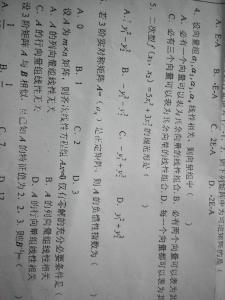 A. E-A B. -E-A C. 2E-A D. -2E-A
4. 设向量组α₁,α₂,α₃,α₄线性相关，则向量组中（ ）
A. 必有一个向量可以表为其余向量的线性组合 B. 必有两个向量可以表为其
C. 必有三个向量可以表为其余向量的线性组合 D. 每一个向量都可以表为其
5. 二次型 f(x₁, x₂) = 5x₁² + 3x₂² 的规范形是（ ）
A. y₁² - y₂² B. -y₁² - y₂² C. -y₁² + y₂² D. y₁² + y₂²
若3阶实对称矩阵 A 是正定矩阵，则 A 的负惯性指数为（ ）
A. 0 B. 1 C. 2 D. 3
设 A 为 m×n 矩阵，则齐次线性方程组 Ax=0 仅有零解的充分必要条件是（
A. A 的列向量组线性无关 B. A 的列向量组线性相关
C. A 的行向量组线性无关 D. A 的行向量组线性相关
设3阶矩阵 A 与 B 相似，且已知 A 的特征值为2，2，3，则|B⁻¹|=（
C. 7 D. 12